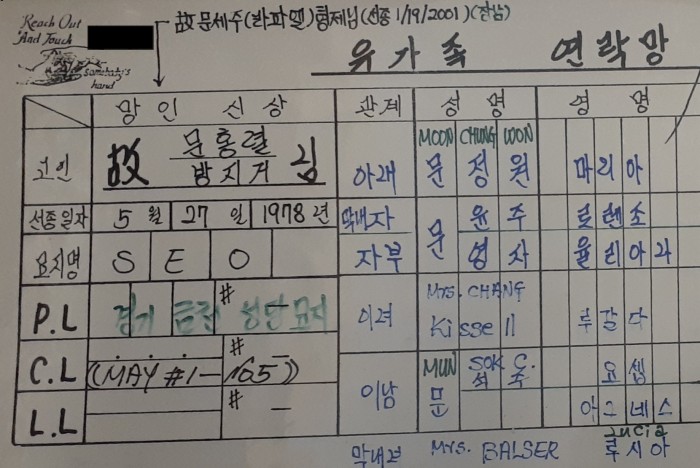 Reach Out
And Touch
somebody's
hand
故 문세주(라파엘)형제님(선종 1/19/2001)(장남)
유 가 족 연 락 망
망 인 신 상 관계 성 명 영 명
고인 故 문홍렬 방지거 김
아래 MOON CHUNG WON 문 정 원 마리아
선종일자 5 월 27 일 1978 년
막내자 문 윤 주 로렌조
자부 영 자 율리아나
묘지명 S E O
P.L 경기 # 성당 묘지
이녀 Mrs. CHANG Kissell 루갈다
C.L ((MAY #1- #165))
이남 MUN SOK C. 문 석 주 요셉
아그네스
L.L # -
막내녀 Mrs. BALSER Lucia 루시아